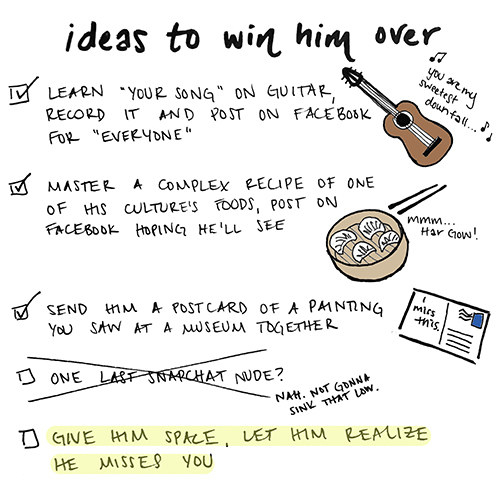 ideas to win him over
LEARN "YOUR SONG" ON GUITAR,
RECORD IT AND POST ON FACEBOOK
FOR "EVERYONE"
you are my
sweetest
downfall...
MASTER A COMPLEX RECIPE OF ONE
OF HIS CULTURE'S FOODS, POST ON
FACEBOOK HOPING HE'LL SEE
mmm...
Har Gow!
SEND HIM A POSTCARD OF A PAINTING
YOU SAW AT A MUSEUM TOGETHER
i
miss
this.
ONE LAST SNAPCHAT NUDE?
NAH. NOT GONNA
SINK THAT LOW.
GIVE HIM SPACE, LET HIM REALIZE
HE MISSES YOU